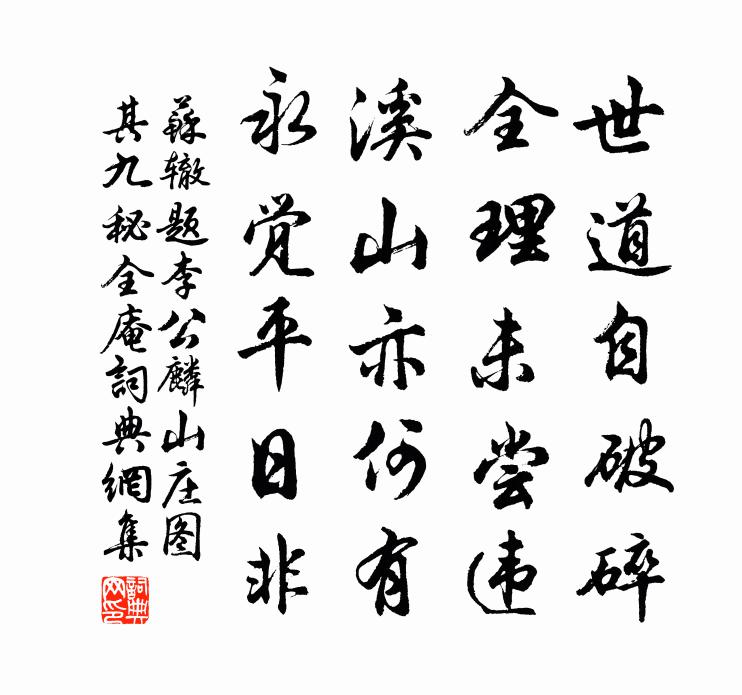 世道自破碎
全理未尝违
溪山亦何有
永觉平日非
蘇辙题李公麟山庄图
其九秘全庵詞典網集
詞典網印